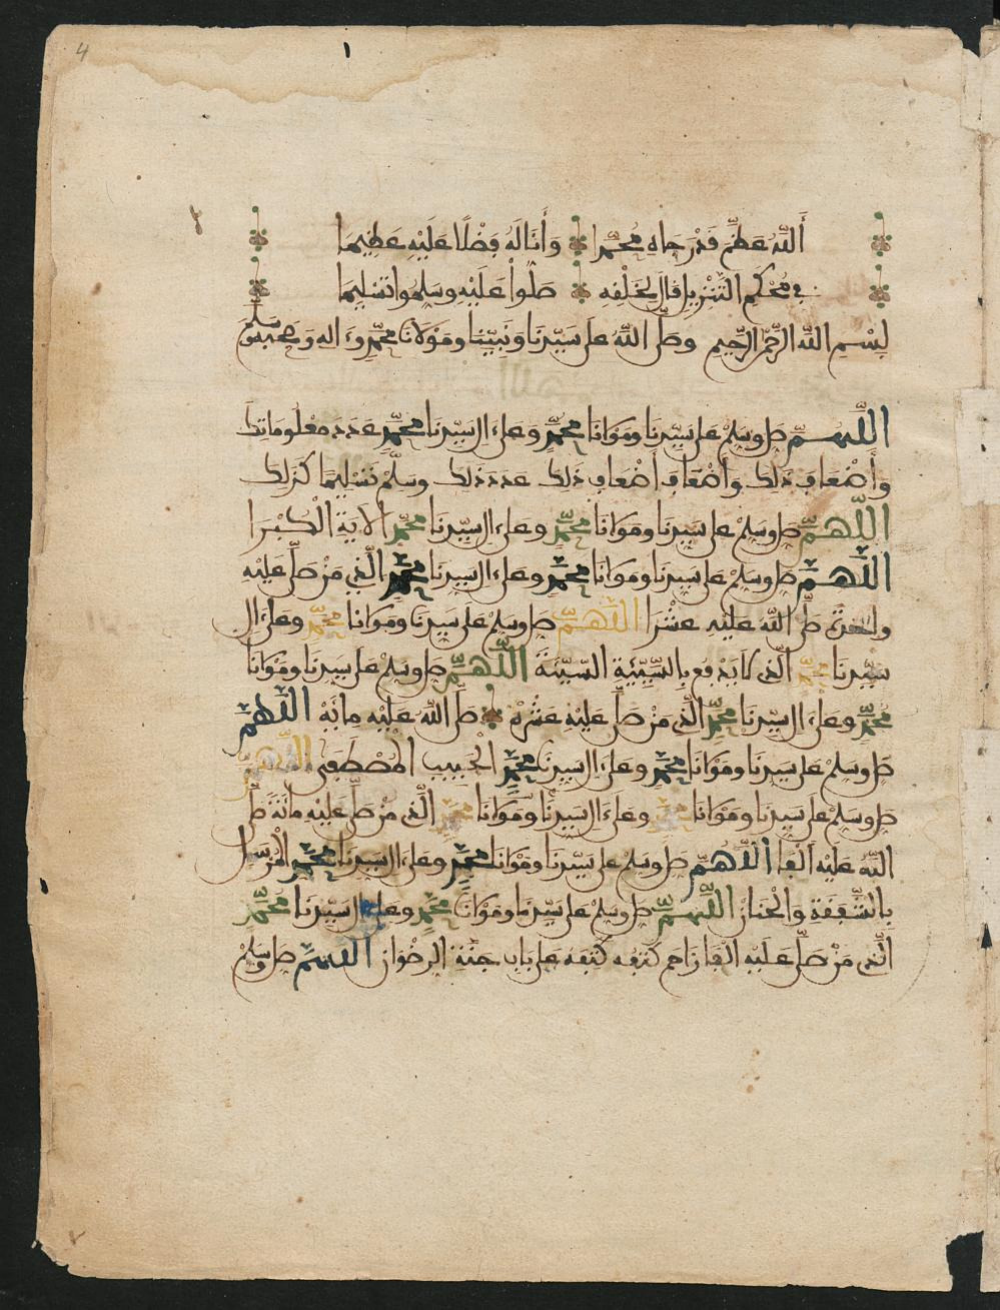 4
أَللَّهُ عَظَّمَ قَدْرَ جَاهِ مُحَمَّدٍ وَأَنَالَهُ فَضْلًا عَلَيْهِ عَظِيمَا
في مُحْكَمِ التَّنْزِيلِ قَالَ لِخَلْقِهِ صَلُّوا عَلَيْهِ وَسَلِّمُوا تَسْلِيمَا
بِسْمِ اللَّهِ الرَّحْمَنِ الرَّحِيمِ وصَلَّى اللَّهُ عَلَى سَيِّدِنَا وَنَبِيِّنَا ومَوْلَانَا مُحَمَّدٍ وءَالِهِ وَصَحْبِهِ وَسَلَّمَ
اللَّهُمَّ صَلِّ وسَلِّمْ عَلَى سَيِّدِنَا ومَوْلَانَا مُحَمَّدٍ وَعَلَى ءَالِ سَيِّدِنَا مُحَمَّدٍ عَدَدَ مَعْلُومَاتِكَ
وأَضْعَافَ ذَلِكَ وأَضْعَافَ أَضْعَافِ ذَلِكَ عدد ذلك وسَلِّمْ تَسْلِيمًا كَذَلِكَ
اللَّهُمَّ صَلِّ وسَلِّمْ عَلَى سَيِّدِنَا ومَوْلَانَا مُحَمَّدٍ وعَلَى ءَالِ سَيِّدِنَا مُحَمَّدٍ الآيَةِ الْكُبْرَا
اللَّهُمَّ صَلِّ وسَلِّمْ عَلَى سَيِّدِنَا ومَوْلَانَا مُحَمَّدٍ وعَلَى ءَالِ سَيِّدِنَا مُحَمَّدٍ الَّذِي مَنْ صَلَّى عَلَيْهِ
واحدة صَلَّى اللَّهُ عَلَيْهِ عَشْرَا اللَّهُمَّ صَلِّ وسَلِّمْ عَلَى سَيِّدِنَا ومَوْلَانَا مُحَمَّدٍ وعَلَى ءَالِ
سَيِّدِنَا مُحَمَّدٍ الَّذِي لَا يَدْفَعُ بِالسَّيِّئَةِ السَّيِّئَةَ اللَّهُمَّ صَلِّ وسَلِّمْ عَلَى سَيِّدِنَا ومَوْلَانَا
مُحَمَّدٍ وعَلَى ءَالِ سَيِّدِنَا مُحَمَّدٍ الَّذِي مَنْ صَلَّى عَلَيْهِ عَشْرَةً صَلَّى اللَّهُ عَلَيْهِ مِائَةً اللَّهُمَّ
صَلِّ وسَلِّمْ عَلَى سَيِّدِنَا ومَوْلَانَا مُحَمَّدٍ وعَلَى ءَالِ سَيِّدِنَا مُحَمَّدٍ الْحَبِيبِ الْمُصْطَفَى اللَّهُمَّ
صَلِّ وسَلِّمْ عَلَى سَيِّدِنَا ومَوْلَانَا مُحَمَّدٍ وعَلَى ءَالِ سَيِّدِنَا ومَوْلَانَا مُحَمَّدٍ الَّذِي مَنْ صَلَّى عَلَيْهِ مِائَةً صَلَّى
اللَّهُ عَلَيْهِ أَلْفَا اللَّهُمَّ صَلِّ وسَلِّمْ عَلَى سَيِّدِنَا ومَوْلَانَا مُحَمَّدٍ وعَلَى ءَالِ سَيِّدِنَا مُحَمَّدٍ الْمُرْسَلِ
بِالشَّفَقَةِ وَالْحَنَانِ اللَّهُمَّ صَلِّ وسَلِّمْ عَلَى سَيِّدِنَا ومَوْلَانَا مُحَمَّدٍ وعَلَى ءَالِ سَيِّدِنَا مُحَمَّدٍ
الَّذِي مَنْ صَلَّى عَلَيْهِ أَلْفًا زَاحَمَ كَتِفُهُ كَتِفَهُ عَلَى بَابِ جَنَّةِ الرِّضْوَانِ اللَّهُمَّ صَلِّ وسَلِّمْ